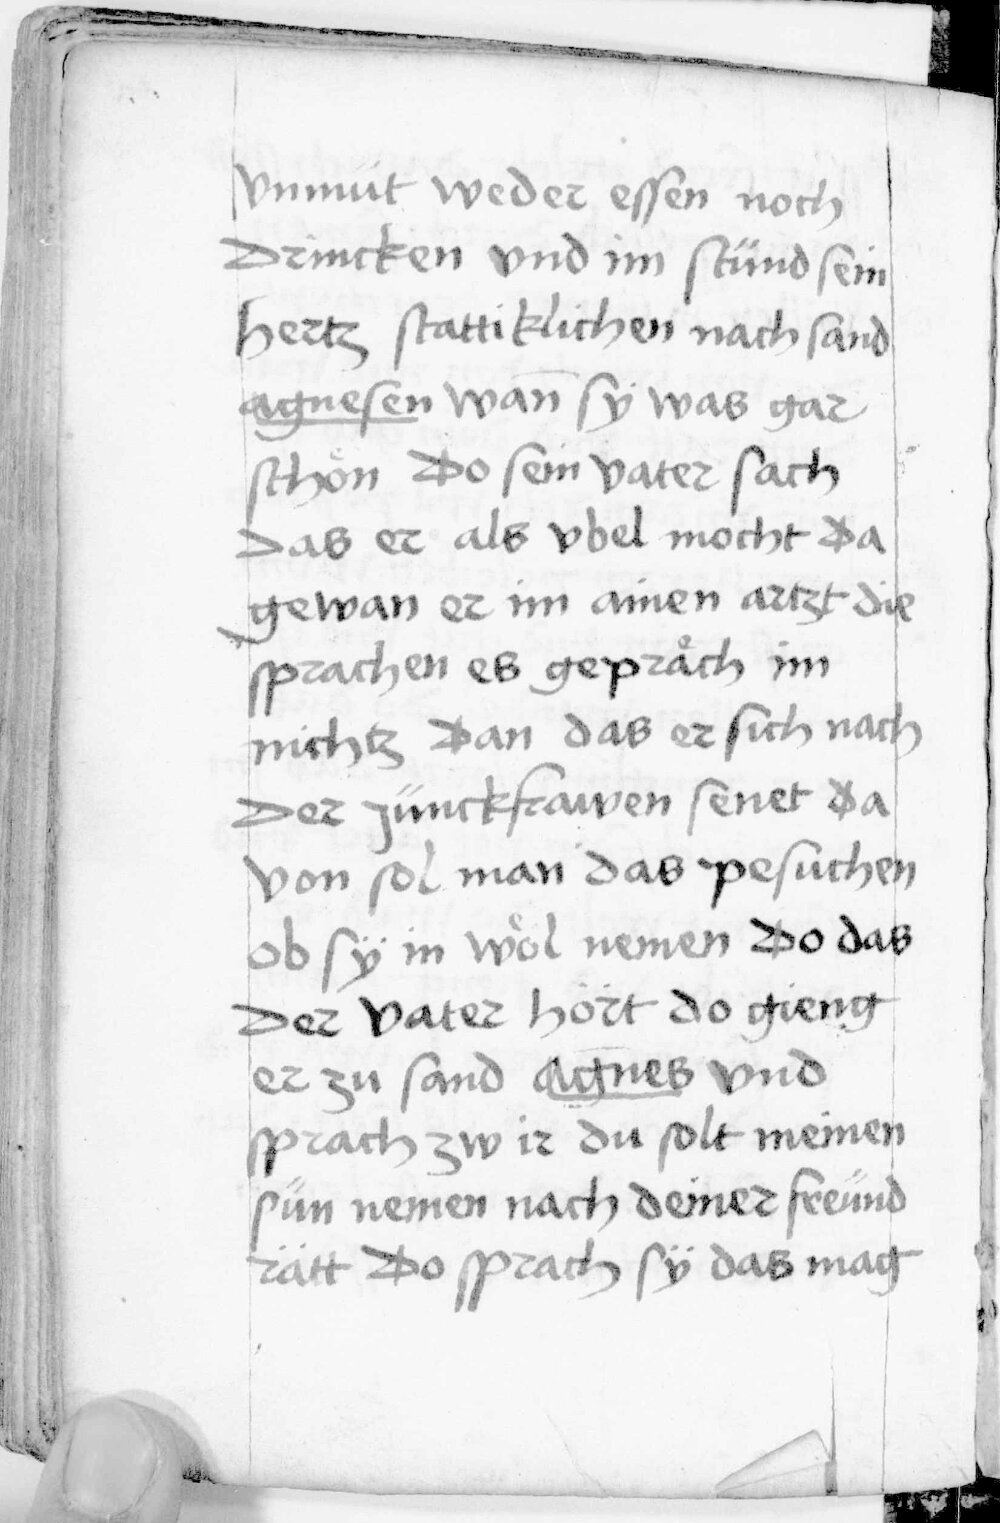 vnmüt weder essen noch
drincken vnd im stünd sein
hertz stattiklichen nach sand
agnesen wan̄ sÿ was gar
schoͤn Do sein vater sach
das er als vbel mocht Da
gewan er im ainen artzt die
sprachen es gepraͤch im
nichtz Dan das er sich nach
der jünckfrawen senet Da
von sol man das pesuchen
ob sÿ in woͤl nemen Do das
der vater hört do gieng
er zu sand Agnes vnd
sprach zw ir du solt meinen
sün nemen nach deiner freünd
rätt Do sprach sÿ das mag